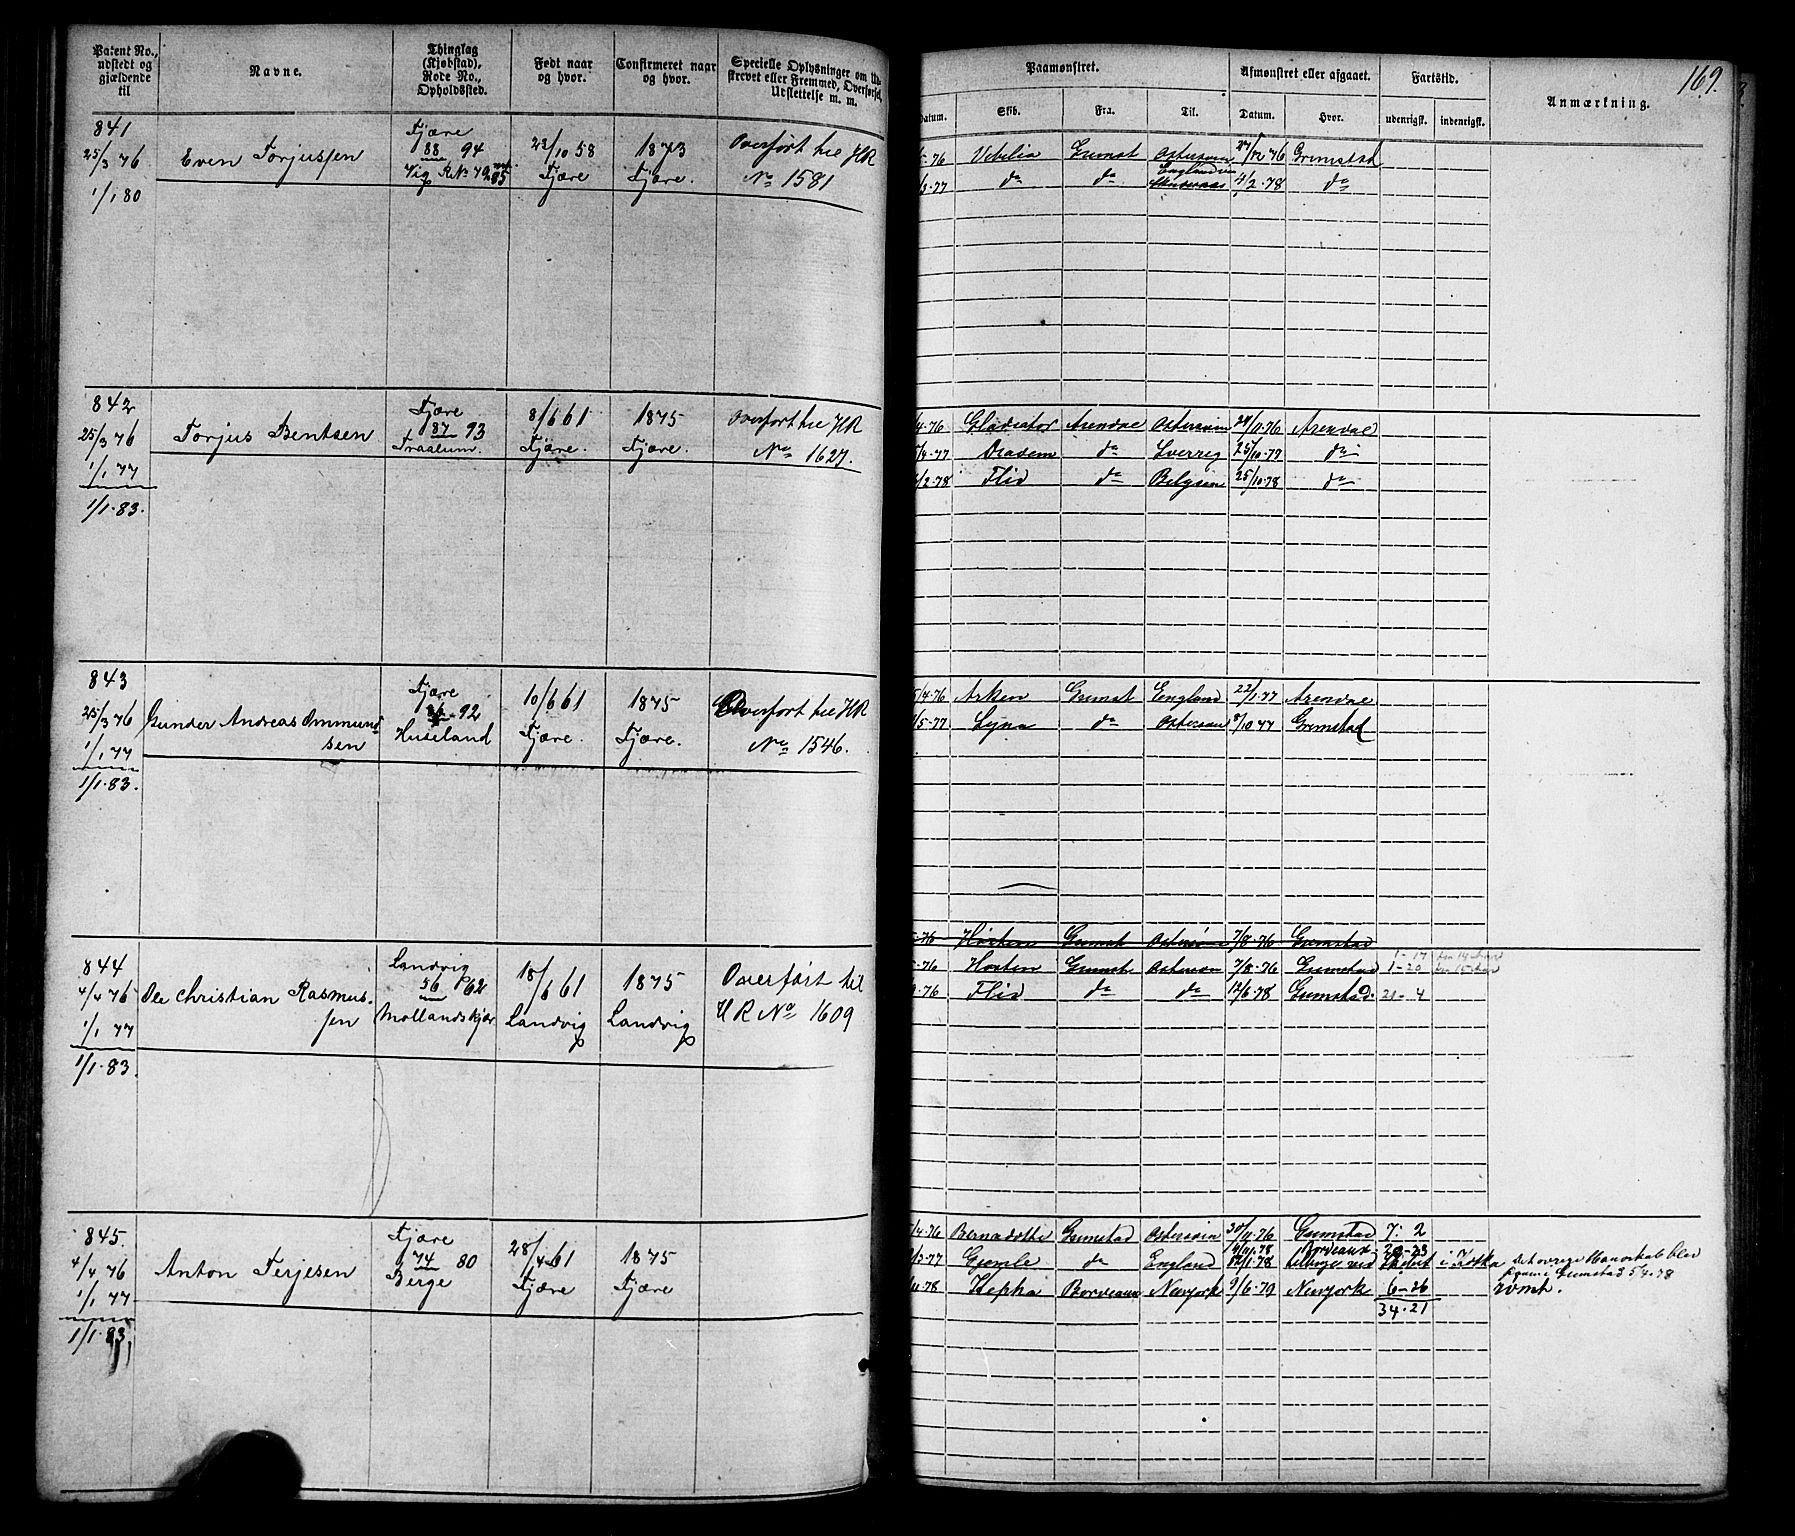 Patent No., udstedt og gjældende til
Navne.
Thinglag (Kjøbstad), Rode No., Opholdssted.
Født naar og hvor.
Confirmeret naar og hvor.
Specielle Oplysninger om Udskrevet eller Fremmed, Overførsel, Udslettelse m. m.
Paamønstret.
Afmønstret eller afgaaet.
Fartstid.
Anmærkning.
169.
Datum.
Skib.
Fra.
Til.
Datum.
Hvor.
udenrigsk.
indenrigsk.
841
25/3 76
1/1 80
Even Torjussen
Fjære
88 94
Vig
23/10 58
Fjære
1873
Fjære.
Overført til HR
No 1581
5-76 Vebelia Grimst Østersøen 27/12 76 Grimstad
77 do do England 4/2-78 do
842
25/3 76
1/1 77
1/1-83.
Torjus Bentsen
Fjære
87 93
Traalum.
8/6 61
Fjære.
1875
Fjære.
Overført til HR
No 1627.
4-76 Gladiator Arendal Østersøen 24/11-76 Arendal
77 do Sverrig 25/10-77 do
2-78 Flid do Belgien 25/10-78 do
843
25/3 76
1/1 77
1/1-83.
Gunder Andreas Ommund-
sen
Fjære
86-92
Huseland
10/6 61
Fjære.
1875
Fjære.
Overført til HR
No 1546.
5/4-76 Arken Grimst England 22/1-77 Arendal
5-77 Lyna do Østersøen 9/10 77 Grimstad
-76 Horten Grimst Østersøen 7/8-76 Grimstad
844
4/4 76
1/1 77
1/1-83.
Ole Christian Rasmus-
sen
Landvig
56 62
Mollandskjær
18/6 61
Landvig
1875
Landvig
Overført til
HR No 1609
1-17
-76 Horten Grimst Østersøen 7/8-76 Grimstad 1-20
-76 Flid do do 12/6-78 Grimstad. 21-4
845.
4/4 76
1/1 77
1/1-83
Anton Terjesen
Fjære
74 80
Berge
28/4 61
Fjære
1875
Fjære
4-76 Bernadotte Grimstad Østersøen 30/11-76 Grimstad 7: 2
3-77 Gjemle do England 14/11-78 Bordeaux
78 Hepha Bordeaux Newyork 9/6-79 Newyork 6-26
34-21